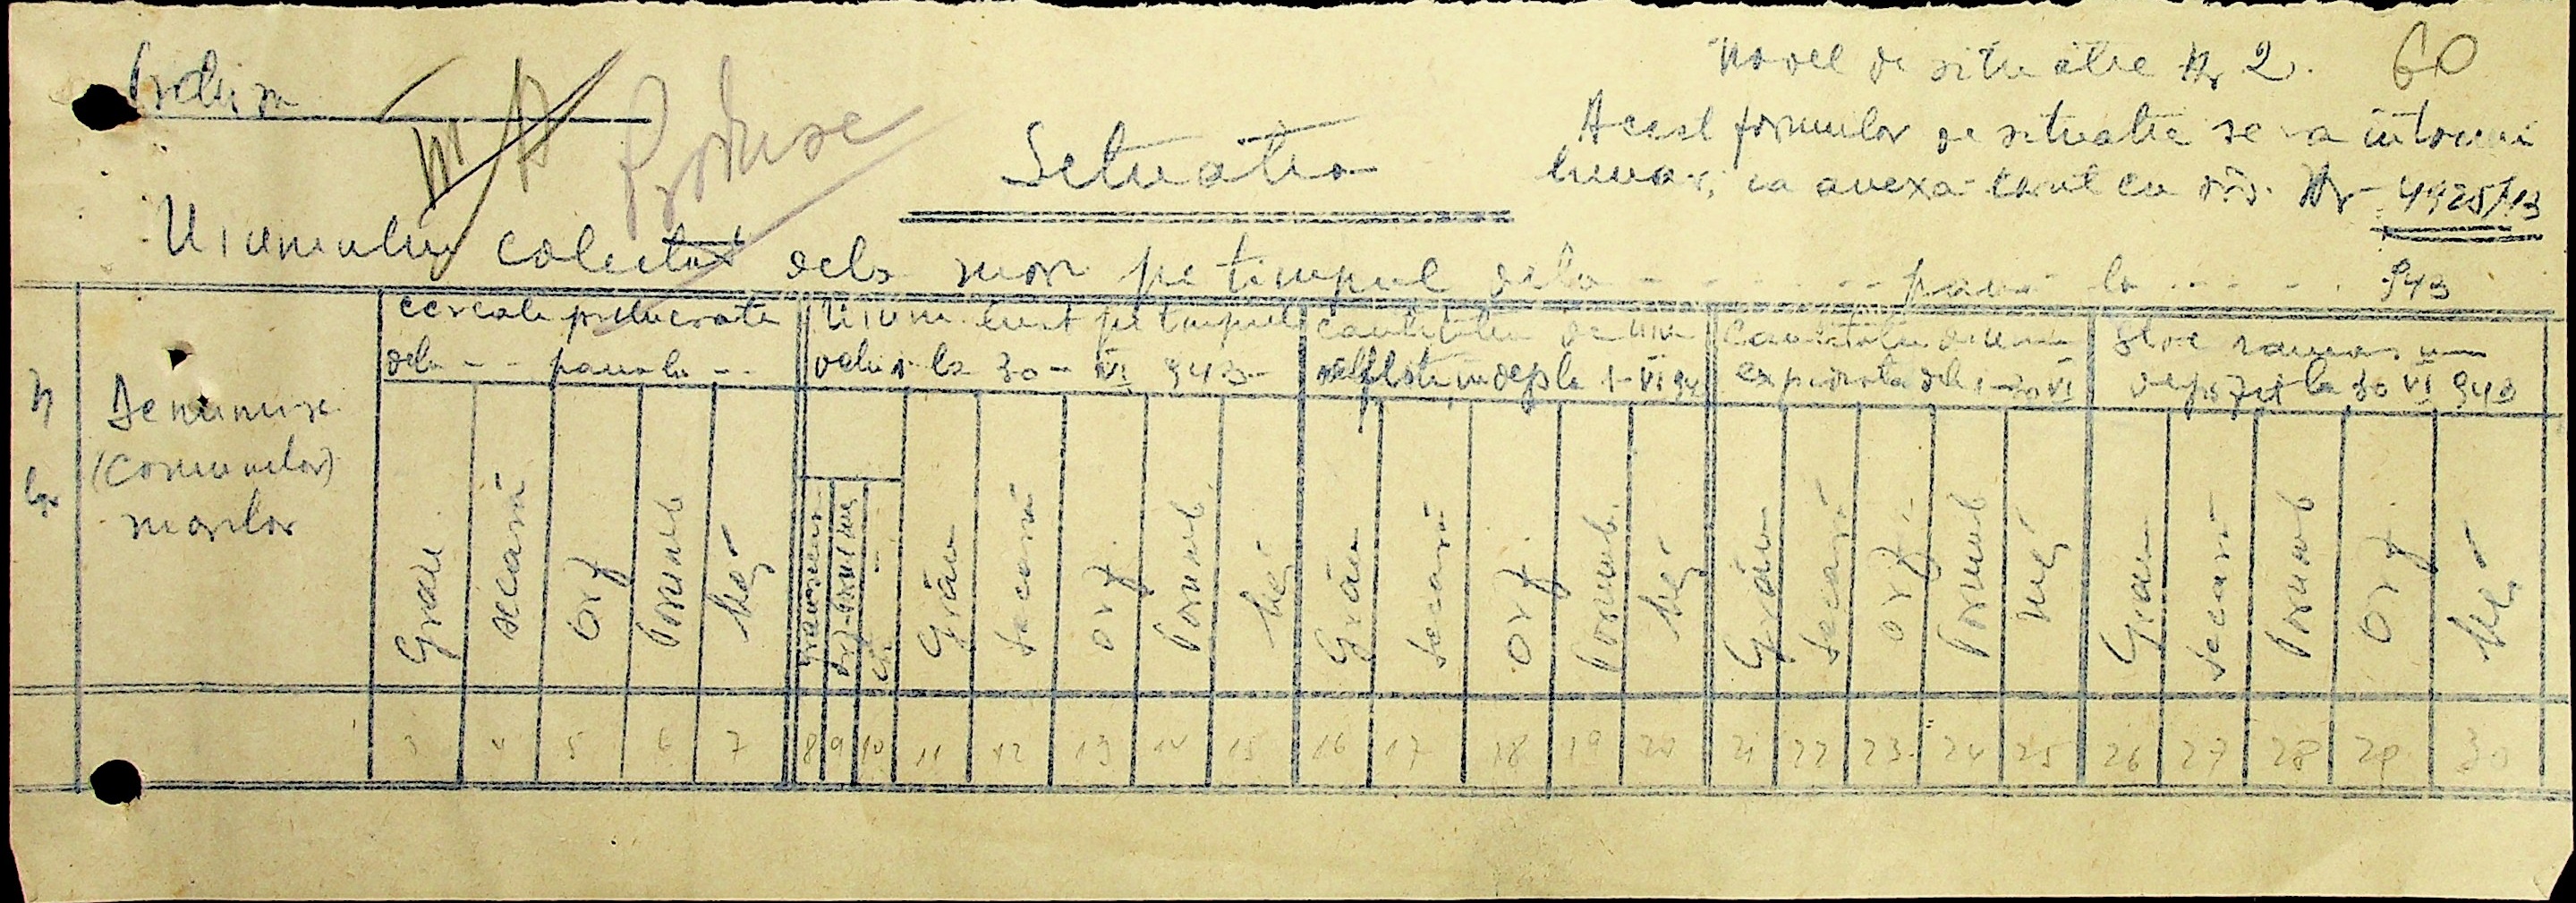 Model de situatie Nr 2.
60
Acest formular de situatie se va intocmi
lunar, ca anexa
Nr 4925/13
943
Produse
Situatia
Uiumului colectat dela mori pe timpul dela - - - - - - pana la - - - - -
N
Denumirea
(Comunelor)
morilor
cereale prelucrate
dela - - - pana la - -
Uium luat pe timpul
dela 1 la 30 - VI 943
Cantitatea de uium
aflate in dep la 1 - VI 94
Cantitatea de uium
expediata dela 1 - 30 VI
Stoc ramas in
depozit la 30 VI 943
Grau
secară
Orz
Porumb
Mei
Grâu
Secară
Orz
Porumb
Mei
Grâu
Secară
Orz
Porumb
Mei
Grâu
Secară
Orz
Porumb
Mei
Grau
Secară
Porumb
Orz
Mei
3 4 5 6 7 8 9 10 11 12 13 14 15 16 17 18 19 20 21 22 23 24 25 26 27 28 29 30